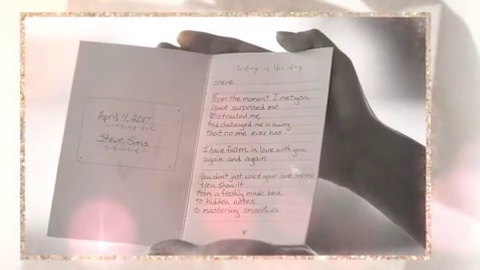 April 7, 2017
Steve Sims
today is the day
Steve
From the moment I met you,
You've surprised me
Distracted me
And challenged me in a way
that no one ever has.
I have fallen in love with you
again and again
You don't just voice your love
You show it
From a freshly made bed
to hidden notes
to mastering smoothies